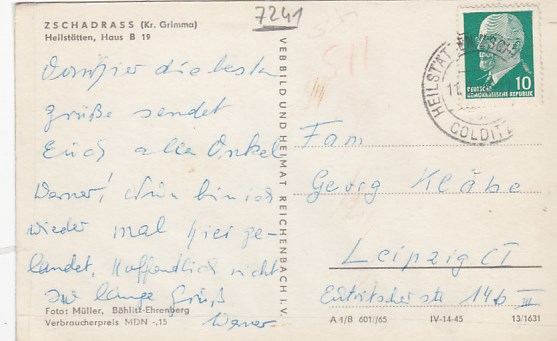 ZSCHADRASS (Kr. Grimma)
Heilstätten, Haus B 19
7241
Von hier die besten
Grüße sendet
Euch allen Onkel
Werner! Nun bin ich
wieder mal hier ge-
landet, hoffentlich nicht
so lange Gruß
Werner
Foto: Müller, Böhlitz-Ehrenberg
Verbraucherpreis MDN -,15
VEB BILD UND HEIMAT REICHENBACH I. V.
10
DEUTSCHE
DEMOKRATISCHE REPUBLIK
COLDITZ
Fam
Georg Kläbe
Leipzig C1
Eutritscherstr 14b III
A 1/B 601/65 IV-14-45 13/1631